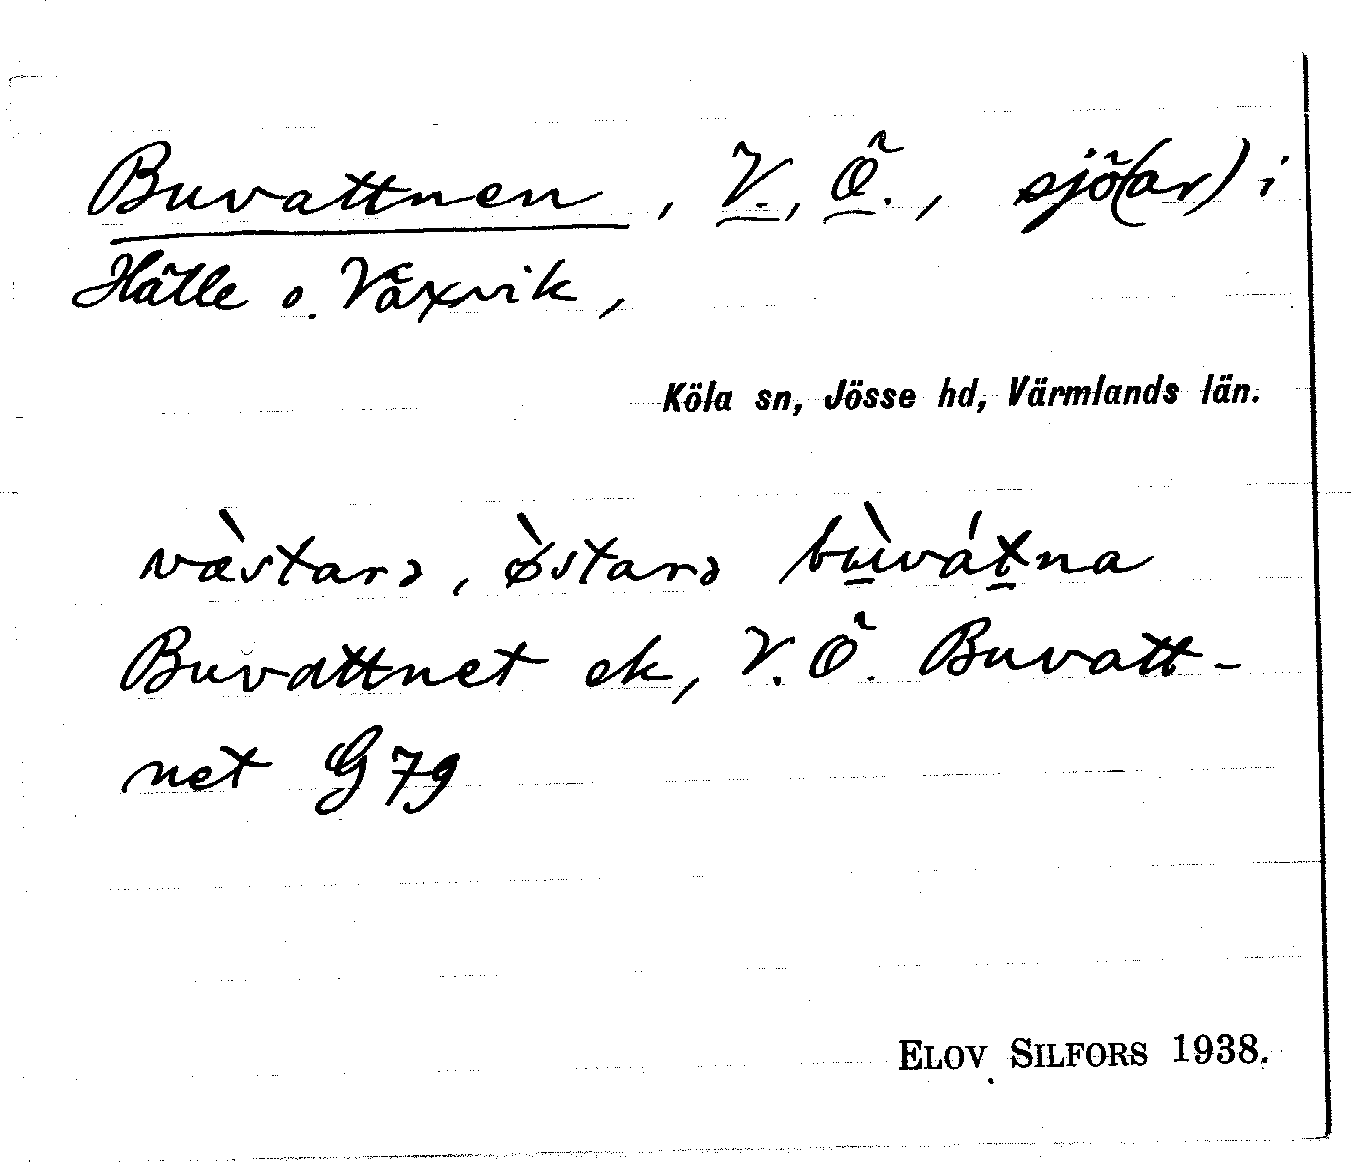 Buvattnen, V., Ö., sjö(ar) i
Hätle o. Växvik,
Köla sn, Jösse hd, Värmlands län.
væ̀starə, ø̀starə bù̱vát̲na
Buvattnet ek, V. Ö. Buvatt-
net G 79
ELOV SILFORS 1938.